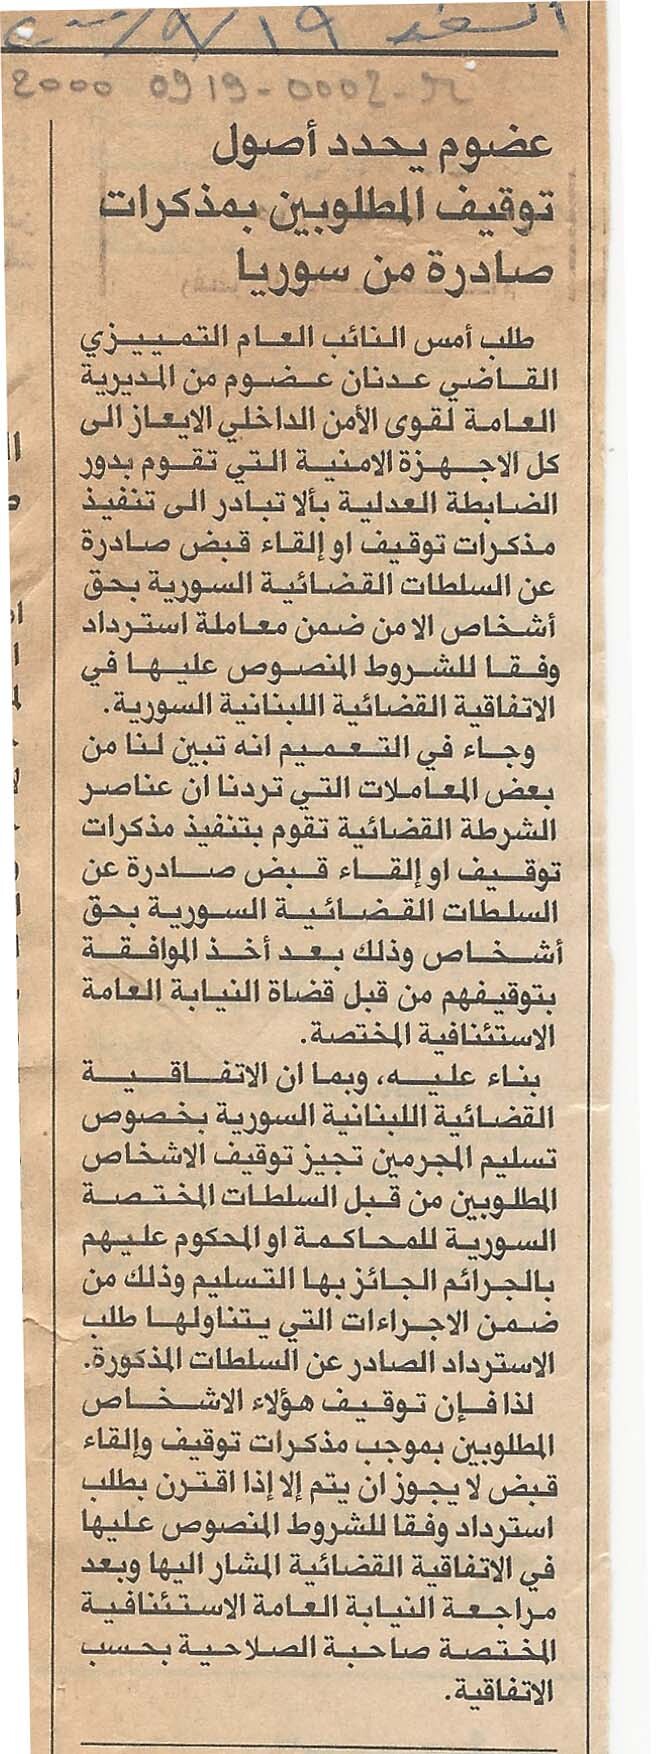 السفير ١٩/٩/٢٠٠٠
2000 0919-0002-
عضوم يحدد أصول
توقيف المطلوبين بمذكرات
صادرة من سوريا
طلب أمس النائب العام التمييزي
القاضي عدنان عضوم من المديرية
العامة لقوى الأمن الداخلي الايعاز الى
كل الاجهزة الامنية التي تقوم بدور
الضابطة العدلية بألا تبادر الى تنفيذ
مذكرات توقيف او إلقاء قبض صادرة
عن السلطات القضائية السورية بحق
أشخاص الا من ضمن معاملة استرداد
وفقا للشروط المنصوص عليها في
الاتفاقية القضائية اللبنانية السورية.
وجاء في التعميم انه تبين لنا من
بعض المعاملات التي تردنا ان عناصر
الشرطة القضائية تقوم بتنفيذ مذكرات
توقيف او إلقاء قبض صادرة عن
السلطات القضائية السورية بحق
أشخاص وذلك بعد أخذ الموافقة
بتوقيفهم من قبل قضاة النيابة العامة
الاستئنافية المختصة.
بناء عليه، وبما ان الاتفاقية
القضائية اللبنانية السورية بخصوص
تسليم المجرمين تجيز توقيف الاشخاص
المطلوبين من قبل السلطات المختصة
السورية للمحاكمة او المحكوم عليهم
بالجرائم الجائز بها التسليم وذلك من
ضمن الاجراءات التي يتناولها طلب
الاسترداد الصادر عن السلطات المذكورة.
لذا فإن توقيف هؤلاء الاشخاص
المطلوبين بموجب مذكرات توقيف وإلقاء
قبض لا يجوز ان يتم إلا إذا اقترن بطلب
استرداد وفقا للشروط المنصوص عليها
في الاتفاقية القضائية المشار اليها وبعد
مراجعة النيابة العامة الاستئنافية
المختصة صاحبة الصلاحية بحسب
الاتفاقية.